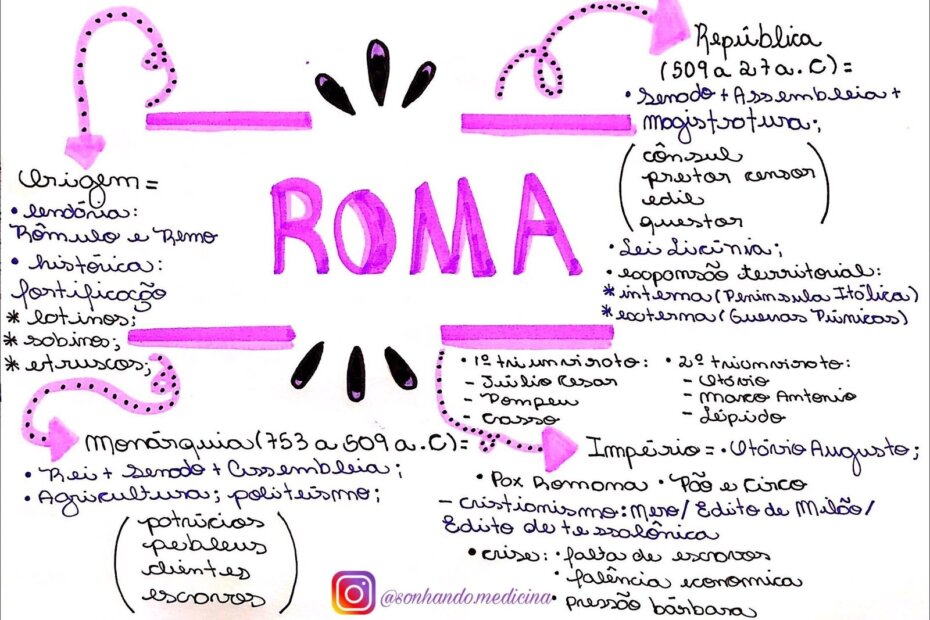 ROMA
Origem =
• lendária:
Rômulo e Remo
• histórica:
fortificação
* latinos;
* sabinos;
* etruscos;
Monárquia (753 a 509 a.C) =
• Rei + Senado + Assembleia;
• Agricultura; politeísmo;
patrícios
pebleus
clientes
escravos
República
(509 a 27 a.C) =
• Senado + Assembleia +
magistratura;
cônsul
pretor censor
edil
questor
• Lei Licínia;
• expansão territorial:
* interna (Península Itálica)
* externa (Guerras Púnicas)
• 1º triunvirato:
- Júlio Cesar
- Pompeu
- Crasso
• 2º triunvirato:
- Otávio
- Marco Antonio
- Lépido
Império = • Otávio Augusto;
• Pax Romana • Pão e Circo
- cristianismo: Nero/ Edito de Milão/
Edito de tessalônica
• crise: • falta de escravos
• falência economica
• pressão bárbara
@sonhando.medicina